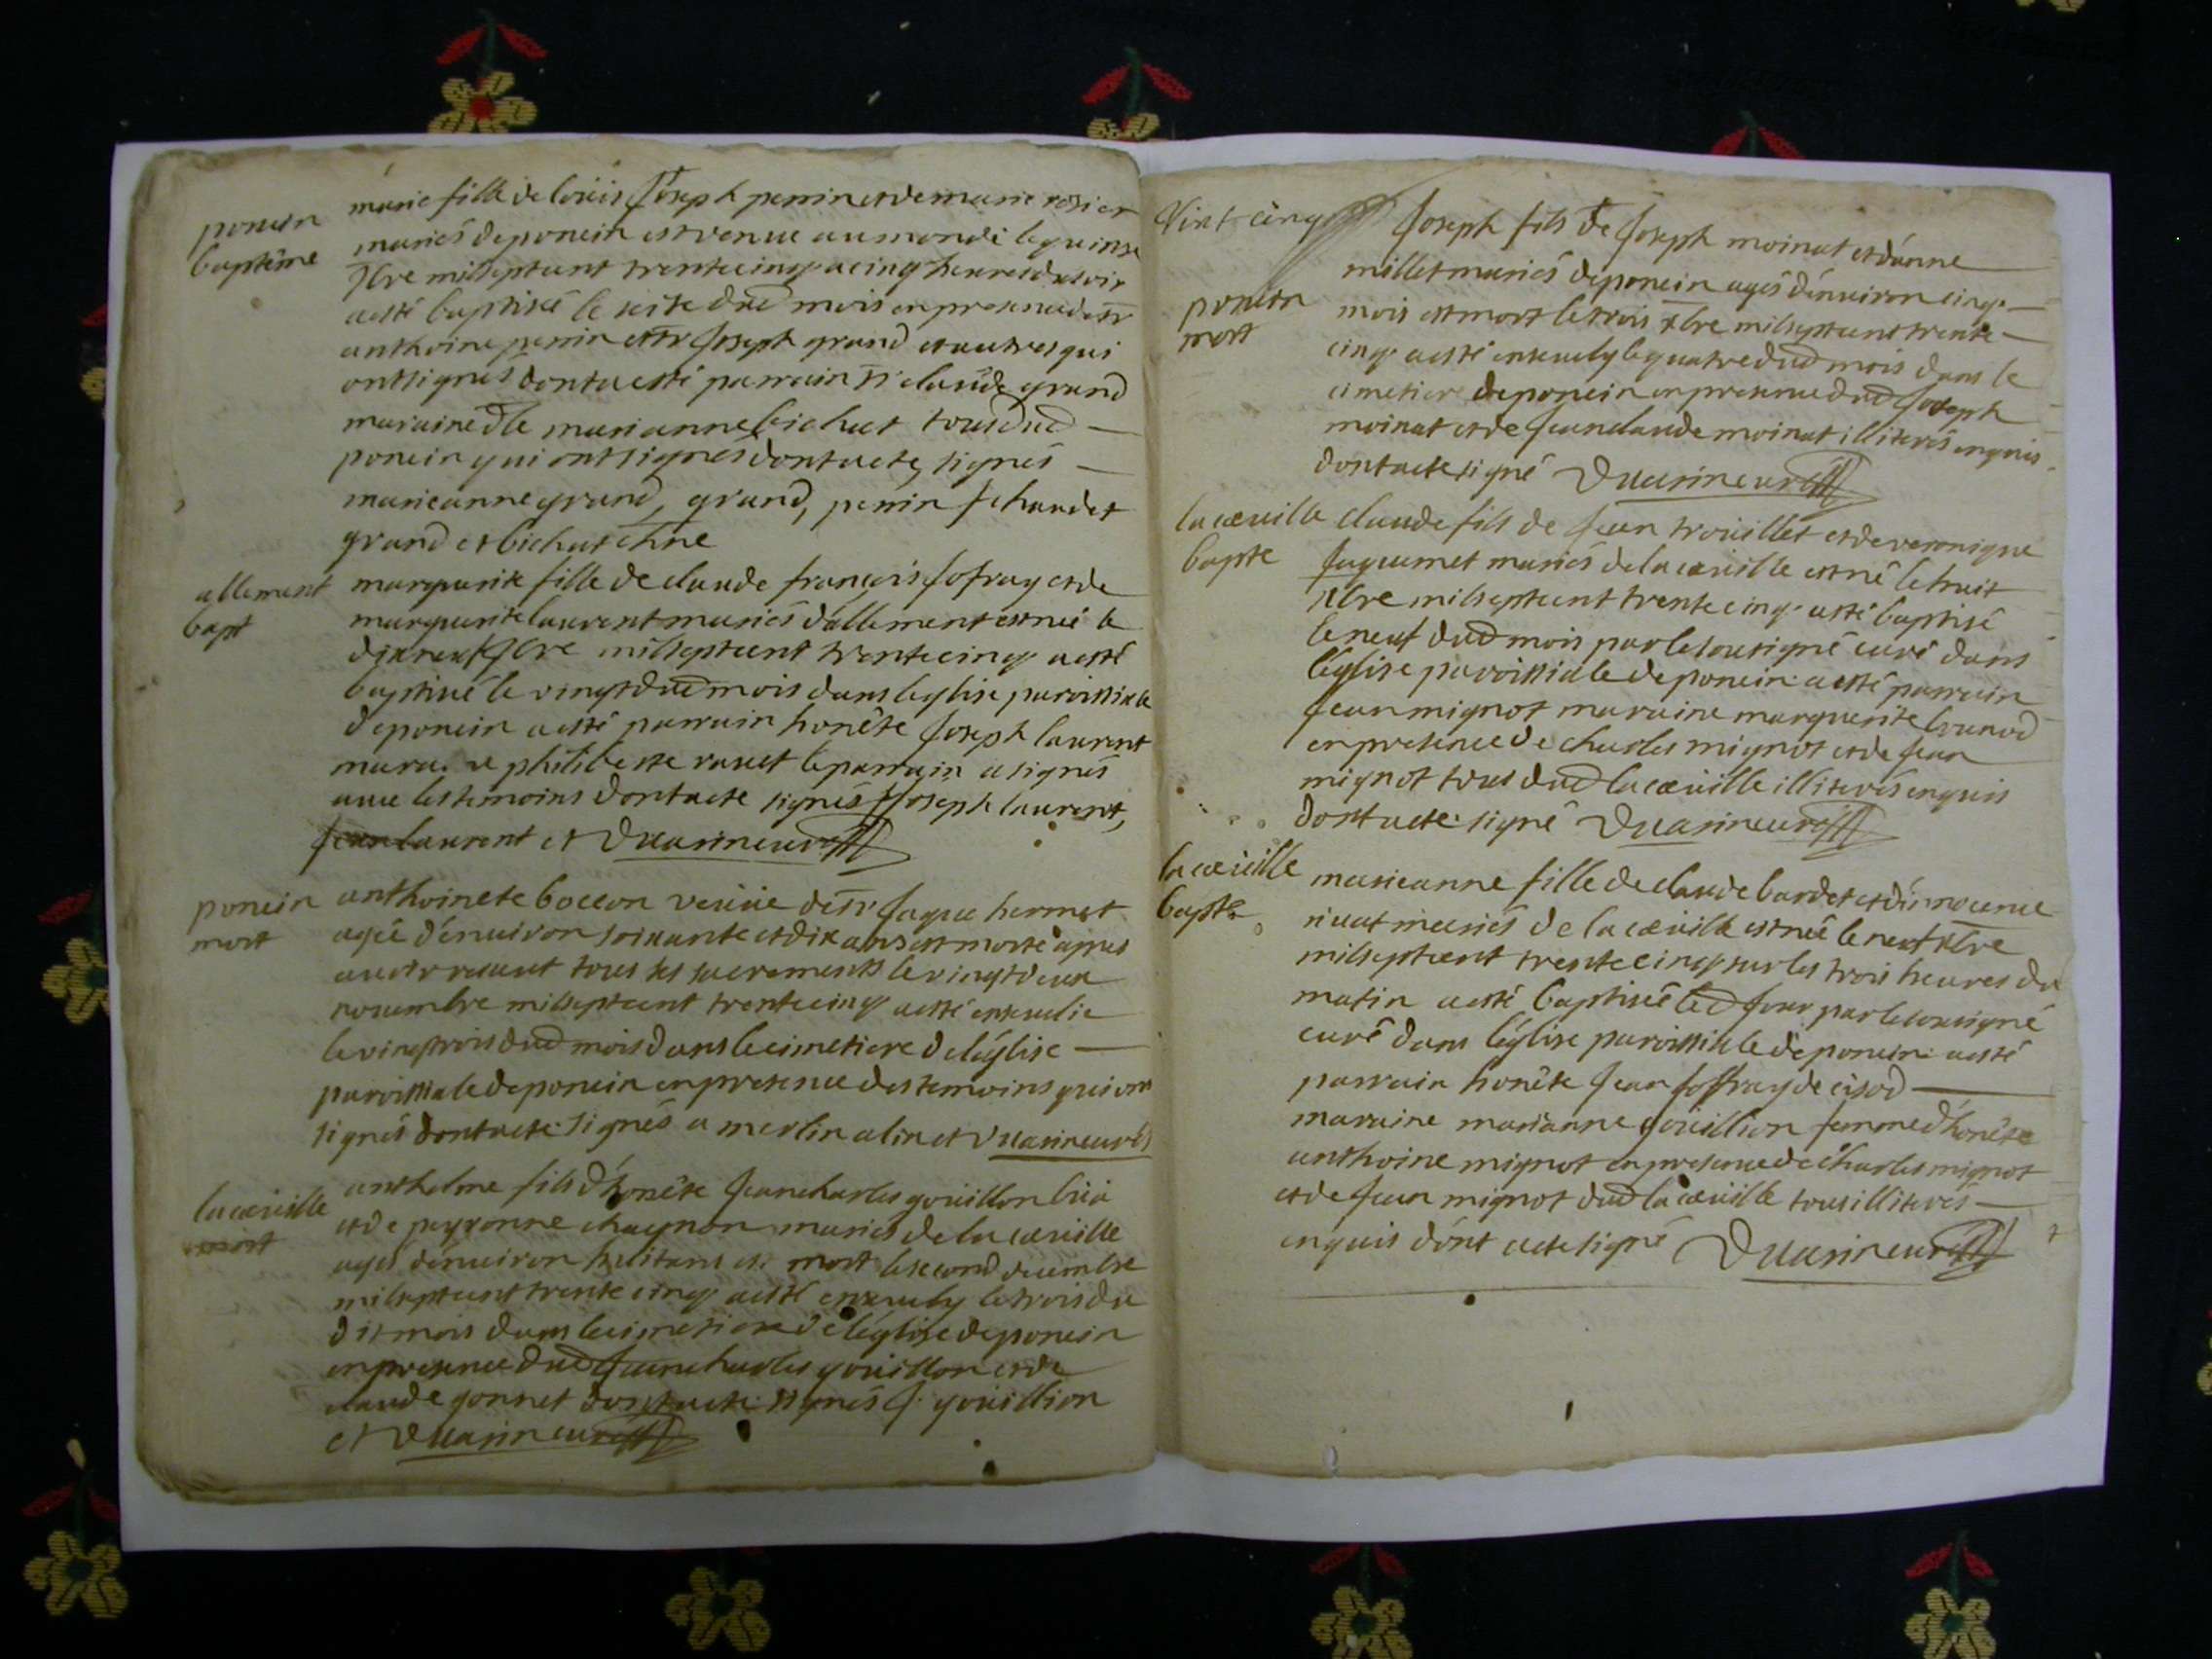 poncin
baptême
marie fille de loüis Joseph perrin et de marie rosier
mariés de poncin est venue au monde le quinse
9bre mil sept cent trente cinq a cinq heures du soir
a esté baptisée le seise dud mois en presence de sr
anthoine perrin et sr Joseph grand et autres qui
ont signés dont a esté parrain sr claude grand
maraine dlle marianne bichat tous dud
poncin qui ont signés dont acte, signés
marieanne grand, grand, perrin J chaudet
grand et bichat
allement
bapt
marguerite fille de claude françois Jofray et de
marguerite laurent mariés d'allement est née le
dixneuf 9bre mil sept cent trente cinq a esté
baptisée le vingt dud mois dans leglise paroissiale
de poncin a esté parrain honête Joseph laurent
philiberte ravet le parrain a signés
avec les temoins dont acte signés Joseph laurent,
Jean laurent et Duarineur
poncin
mort
anthoinete boccon veüve de sr Jaque hermet
agée d'énuiron soixante et dix ans est morte apres
avoir tous ses sacrements le vingt deux
novembre mil sept cent trente cinq a esté ensevelie
le vingtrois dud mois dans le cimetiere de léglise
paroissiale de poncin en presence des temoins qui ont
signés dont acte signés a merlin alin et Duarineur
la cœuille
mort
anthelme fils d'honête Jean charles goüillon
et de peyronne chaynon mariés de la cœuille
agés d'enuiron huit ans est mort le second decembre
mil sept cent trente cinq a esté ensevely le trois du
dit mois dans le cimetiere de léglise de poncin
en presence dud Jean charles goüillon et de
claude gonnet dont acte signés J. goüillion
et Duarineur
Vint cinq
poncin
mort
Joseph fils de Joseph moinat et d'anne
millet mariés de poncin agés d'énuiron cinq
mois est mort le trois xbre mil sept cent trente
cinq a esté ensevely le quatre dud mois dans le
cimetier de poncin en presence dud Joseph
moinat et de Jean claude moinat illiterés enquis
dont acte signé Duarineur
la cœuille
bapte
claude fils de Jean troüillet et de veronique
Jaquemet mariés de la cœuille est né le huit
xbre mil sept cent trente cinq a esté baptisé
le neuf dud mois par le sousigné curé dans
l'église paroissiale de poncin a esté parrain
Jean mignot maraine marguerite brunod
en presence de charles mignot et de Jean
mignot tous dud la cœuille illiterés enquis
dont acte signé Duarineur
la cœuille
bapte
marieanne fille de claude bardet et d'innocence
niuat mariés de la cœuille est née le neuf xbre
mil sept cent trente cinq sur les trois heures du
matin a esté baptisée led Jour par le sousigné
curé dans l'église paroissiale de poncin a esté
parrain honête Jean Joffray de cisod
maraine marianne goüillion femme d'honête
anthoine mignot en presence de charles mignot
et de Jean mignot dud la cœuille tous illiterés
enquis dont acte signé Duarineur